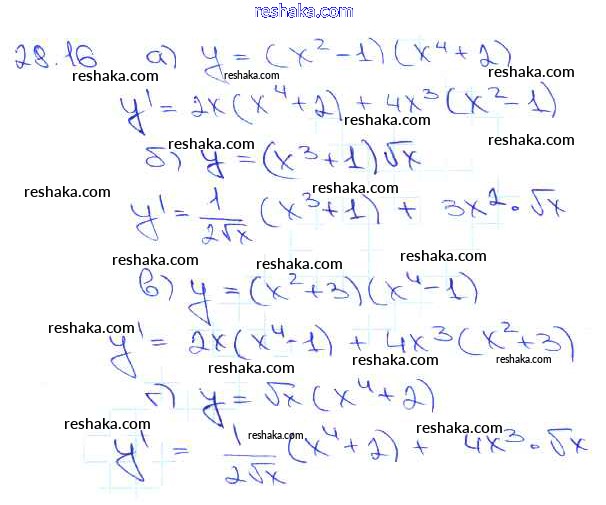 reshaka.com
28.16 а) y = (x² - 1)(x⁴ + 2)
reshaka.com reshaka.com reshaka.com
y' = 2x(x⁴ + 2) + 4x³(x² - 1)
reshaka.com
reshaka.com reshaka.com
б) y = (x³ + 1)√x
reshaka.com reshaka.com
y' = 1/(2√x) (x³ + 1) + 3x² · √x
reshaka.com reshaka.com reshaka.com
в) y = (x² + 3)(x⁴ - 1)
reshaka.com
y' = 2x(x⁴ - 1) + 4x³(x² + 3)
reshaka.com reshaka.com
г) y = √x (x⁴ + 2)
reshaka.com reshaka.com reshaka.com
y' = 1/(2√x) (x⁴ + 2) + 4x³ · √x